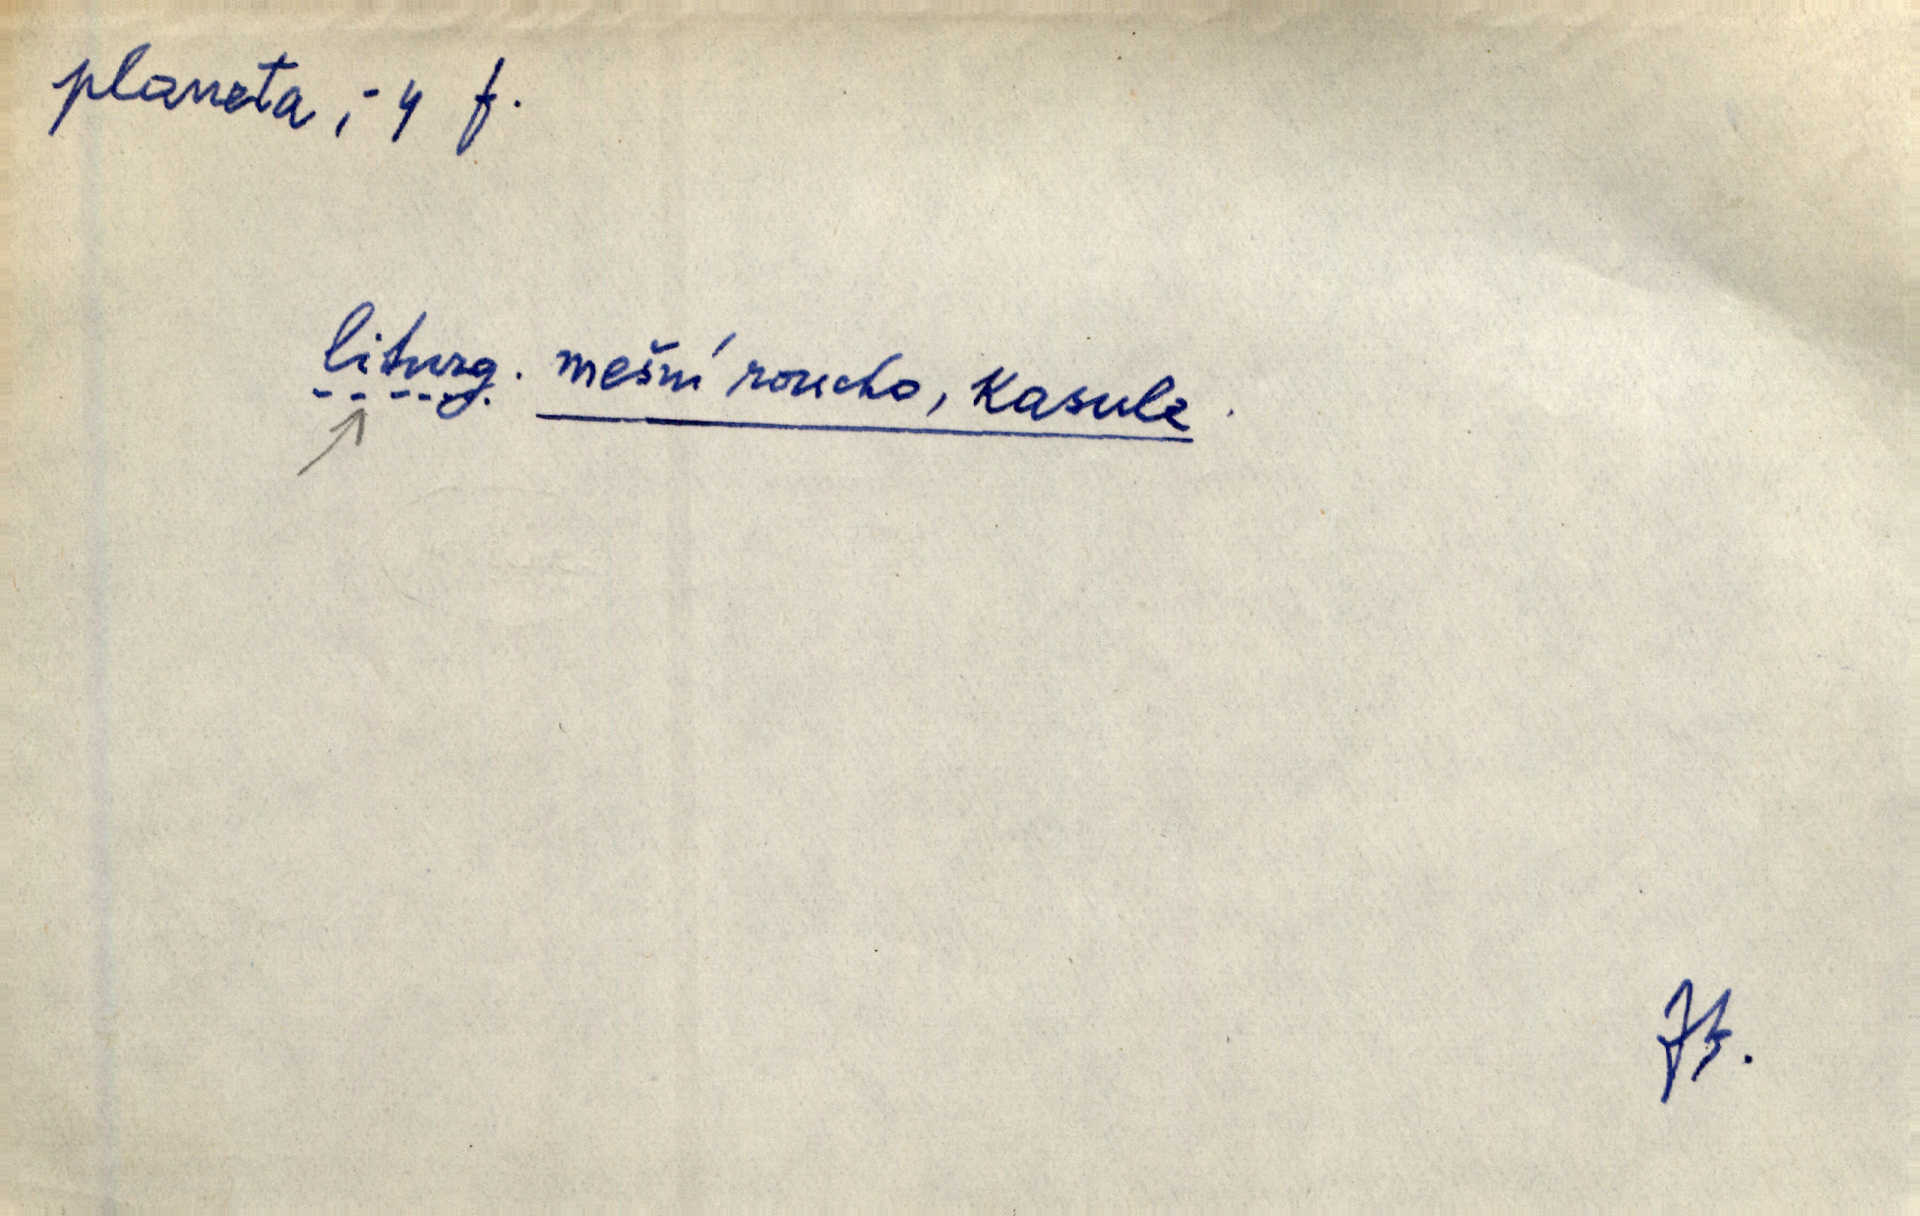 planeta, -y f.
liturg. mešní roucho, kasule